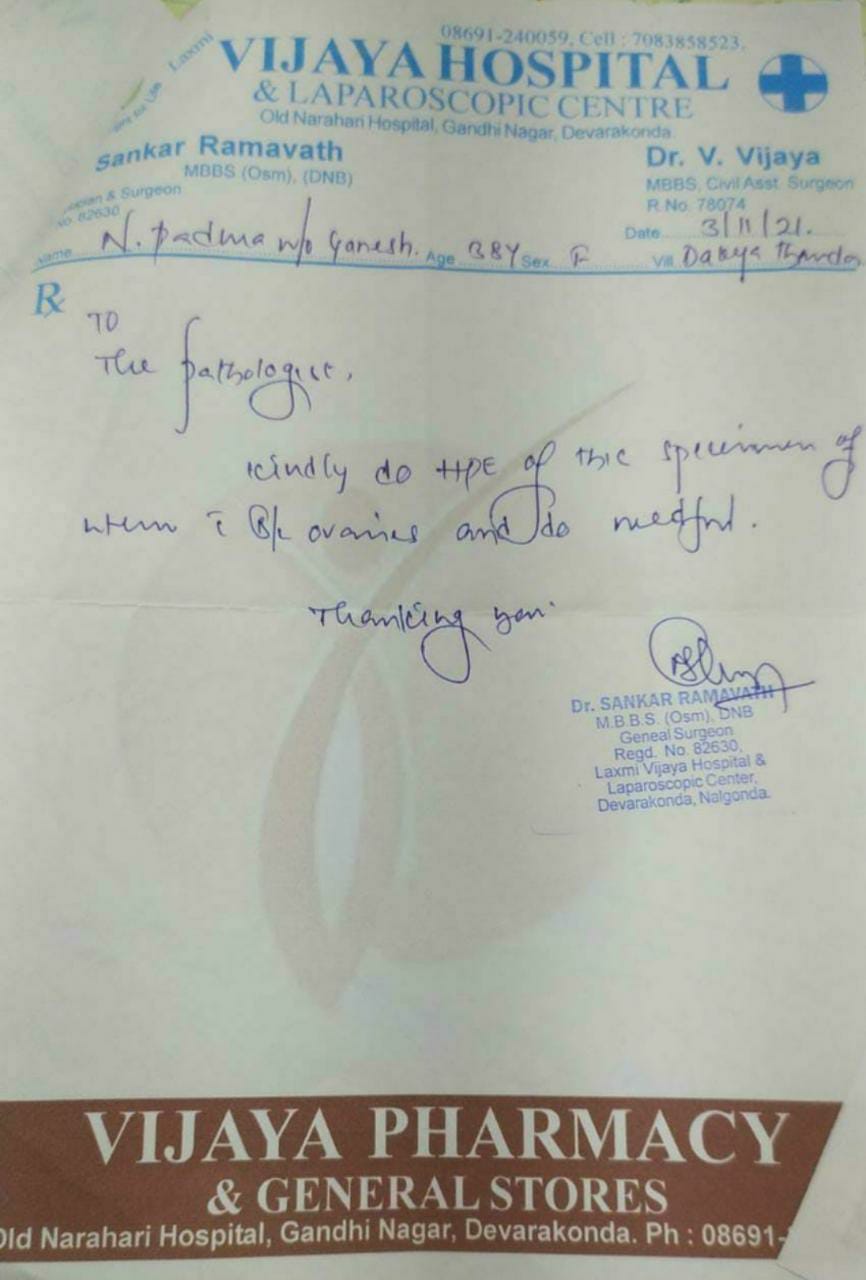 08691-240059, Cell : 7083858523.
Laxmi
VIJAYA HOSPITAL
& LAPAROSCOPIC CENTRE
Old Narahari Hospital, Gandhi Nagar, Devarakonda.
Sankar Ramavath
MBBS (Osm), (DNB)
& Surgeon
No. 82630
Dr. V. Vijaya
MBBS, Civil Asst. Surgeon
R.No. 78074
Date 3/11/21.
Name N. Padma w/o Ganesh. Age 38Y Sex F Vill Dakya Thanda
Rx
TO
The pathologist,
kindly do HPE of this specimen of
uterus c̄ B/L ovaries and do needful.
Thanking you.
Dr. SANKAR RAMAVATH
M.B.B.S. (Osm), DNB
Geneal Surgeon
Regd. No. 82630,
Laxmi Vijaya Hospital &
Laparoscopic Center,
Devarakonda, Nalgonda.
VIJAYA PHARMACY
& GENERAL STORES
Old Narahari Hospital, Gandhi Nagar, Devarakonda. Ph : 08691-